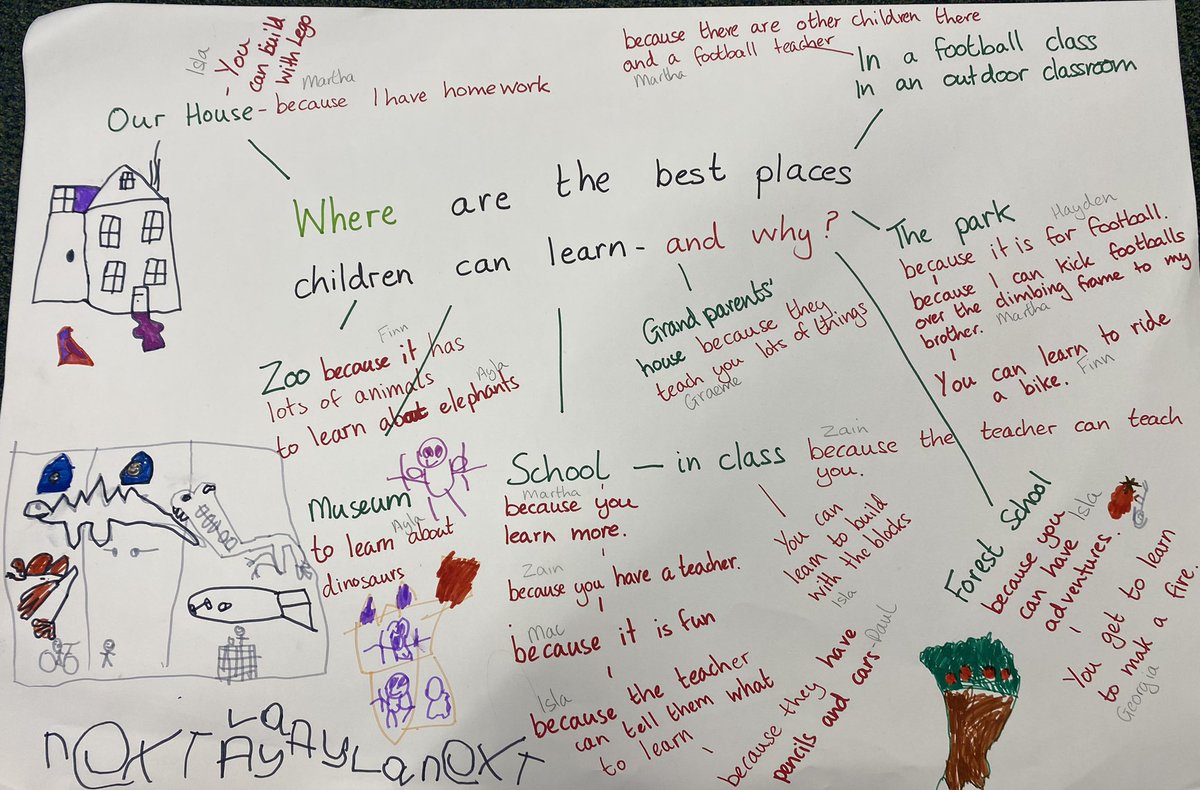 Isla
You
can build
with Lego
Martha
Our House - because I have homework
because there are other children there
and a football teacher
Martha
In a football class
In an outdoor classroom
Where are the best places
children can learn - and why?
The park
Hayden
because it is for football.
because I can kick footballs
over the climbing frame to my
brother. Martha
You can learn to ride
a bike. Finn
Grandparents'
house because they
teach you lots of things
Graeme
Finn
Zoo because it has
lots of animals
Ayla
to learn about elephants
Museum
Ayla
to learn about
dinosaurs
School - in class
Zain
because the teacher can teach
you.
Martha
because you
learn more.
Zain
because you have a teacher.
Mac
because it is fun
Isla
because the teacher
can tell them what
to learn
You can
learn to build
with the blocks
Isla
because they have
pencils and cars - Paul
Forest School
because you
can have Isla
adventures.
You get to learn
to mak a fire.
Georgia